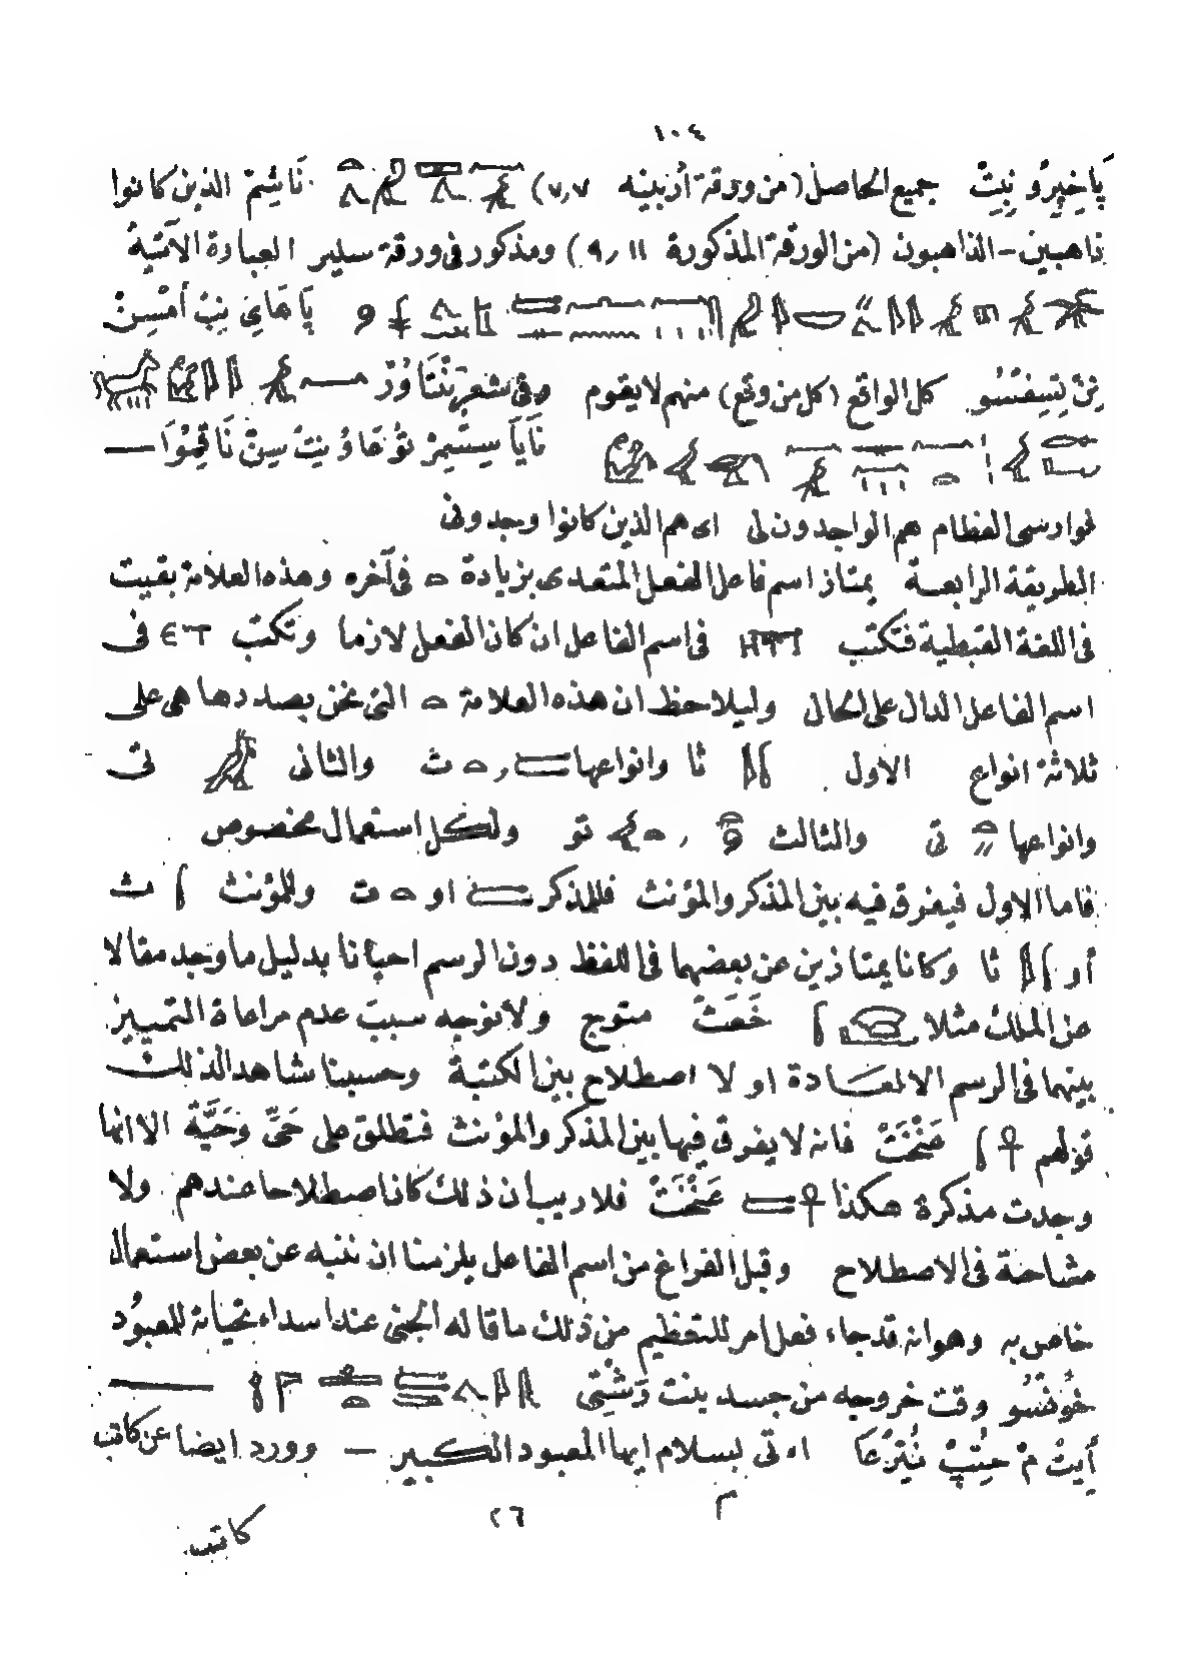 ١٠٤
پاخپرُو نِبِتْ جميع الحاصل (من ورقة أربنيه ٧٫٧) نَاشِمْ الذين كانوا
ذاهبين - الذاهبون (من الورقة المذكورة ١١ ٫ ٩) ومذكور فى ورقة سلير العبارة الآتية
پَا هَاىِ نِبْ أمْسِنْ
كل الواقع (كل من وقع) منهم لا يقوم وفى شعر بَنْتَاوُرْ
نَايَا
لحوارسى العظام هم الواجدون لى اى هم الذين كانوا وجدونى
الطريقة الرابعة يمتاز اسم فاعل الفعل المتعدى بزيادة فى آخره وهذه العلامة بقيت
فى اللغة القبطية فتكتب فى اسم الفاعل ان كان الفعل لازما وتكتب ⲉⲧ فى
اسم الفاعل الدال على الحال وليلاحظ ان هذه العلامة التى نحن بصددها هى على
ثلاثة انواع الاول ثا وانواعها ث والثانى تى
وانواعها تى والثالث تو ولكل استعمال مخصوص
فاما الاول فيفرق فيه بين المذكر والمؤنث فللمذكر او ت وللمؤنث ث
أو ثا وكانا يمتازين عن بعضهما فى اللفظ دون الرسم احيانا بدليل ما وجد مقالا
عن الملك مثلا خَعَثْ متوج ولا نوجه سبب عدم مراعاة التمييز
بينهما فى الرسم الا لعادة او لا اصطلاح بين الكتبة وحسبنا شاهد الذلك
قولهم عَنْخَتْ فانه لا يفرق فيها بين المذكر والمؤنث فتطلق على حَىّ وَحَيَّة الا انها
وجدت مذكرة هكذا عَنْخَثْ فلا ريب ان ذلك كان اصطلاحا عندهم ولا
مشاحة فى الاصطلاح وقبل الفراغ من اسم الفاعل يلزمنا ان ننبه عن بعض استعمال
خاص به وهو انه قد جاء فعل امر للتعظيم من ذلك ما قاله الجنى عند اسداء تحياته للمعبود
خُونْسُو وقت خروجه من جسد بنت رَشْتِى
أيِتْ مْ حِتِپْ نُتِرْعَا اءتى بسلام ايها المعبود الكبير — وورد ايضا عن كاتب
م ٢٦
كاتب